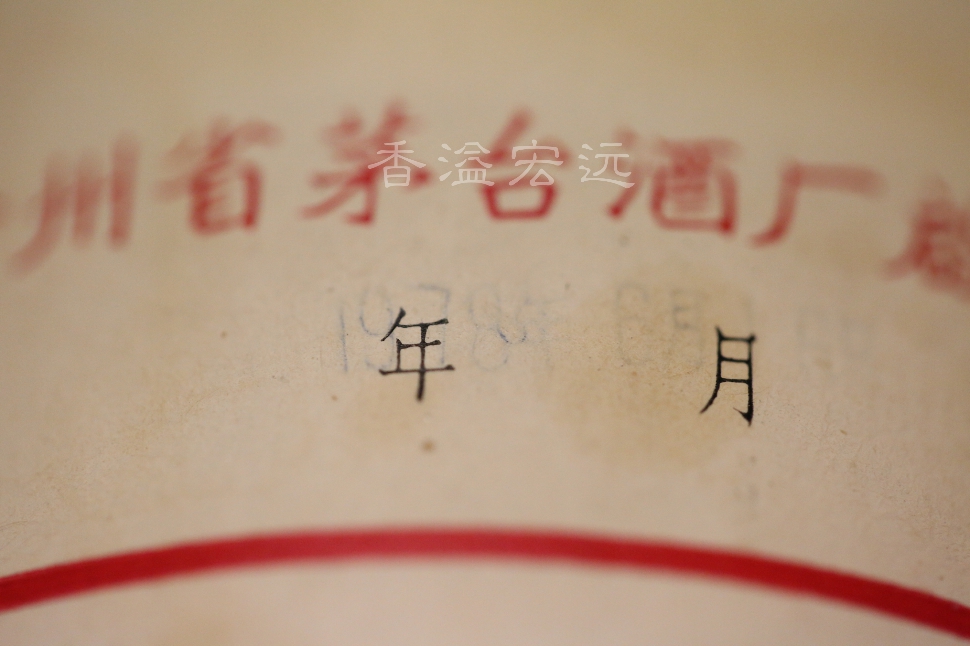 州省茅台酒厂
香溢宏远
年 月